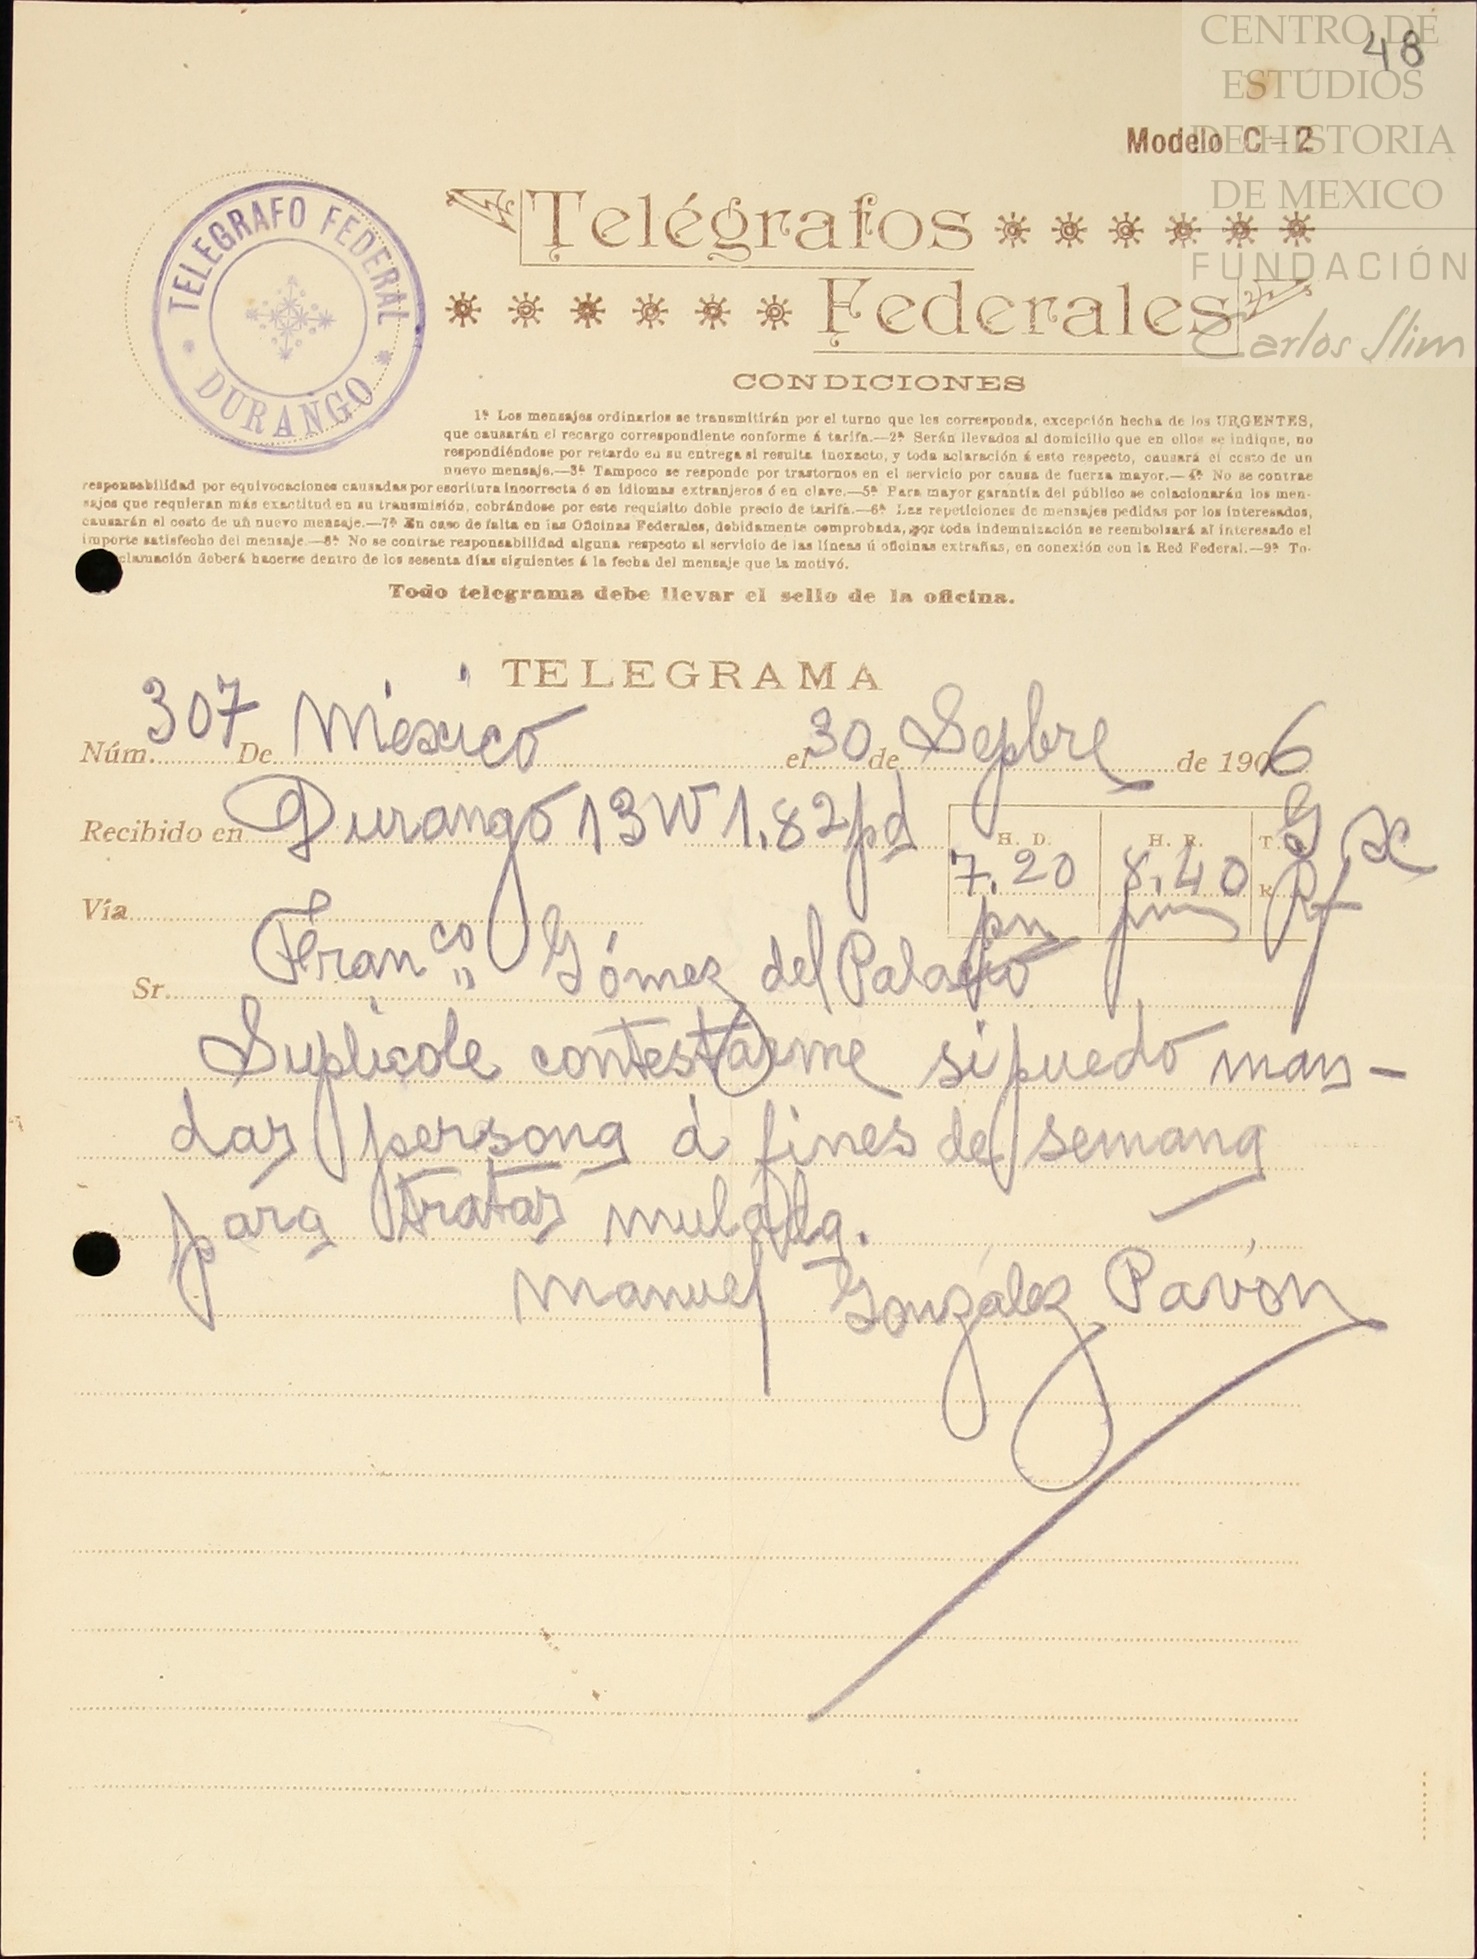 CENTRO DE
ESTUDIOS
DE HISTORIA
DE MEXICO
FUNDACIÓN
Carlos Slim
48
Modelo C-2
TELEGRAFO FEDERAL
DURANGO
Telégrafos
Federales
CONDICIONES
1ª Los mensajes ordinarios se transmitirán por el turno que les corresponda, excepción hecha de los URGENTES,
que causarán el recargo correspondiente conforme á tarifa.—2ª Serán llevados al domicilio que en ellos se indique, no
respondiéndose por retardo en su entrega si resulta inexacto, y toda aclaración á este respecto, causará el costo de un
nuevo mensaje.—3ª Tampoco se responde por trastornos en el servicio por causa de fuerza mayor.—4ª No se contrae
responsabilidad por equivocaciones causadas por escritura incorrecta ó en idiomas extranjeros ó en clave.—5ª Para mayor garantía del público se colacionarán los men-
sajes que requieran más exactitud en su transmisión, cobrándose por este requisito doble precio de tarifa.—6ª Las repeticiones de mensajes pedidas por los interesados,
causarán el costo de un nuevo mensaje.—7ª En caso de falta en las Oficinas Federales, debidamente comprobada, por toda indemnización se reembolsará al interesado el
importe satisfecho del mensaje.—8ª No se contrae responsabilidad alguna respecto al servicio de las líneas ú oficinas extrañas, en conexión con la Red Federal.—9ª To-
clamación deberá hacerse dentro de los sesenta días siguientes á la fecha del mensaje que la motivó.
Todo telegrama debe llevar el sello de la oficina.
TELEGRAMA
Núm. 307 De México el 30 de Sepbre de 1906
Recibido en Durango 13 W 1.82 pd H. D. H. R. T. G X
7.20 pm 8.40 pm R Rf
Vía
Sr. Franco Gómez del Palacio
Suplicole contestarme si puedo man-
dar persona á fines de semana
para tratar mulada.
Manuel González Pavón